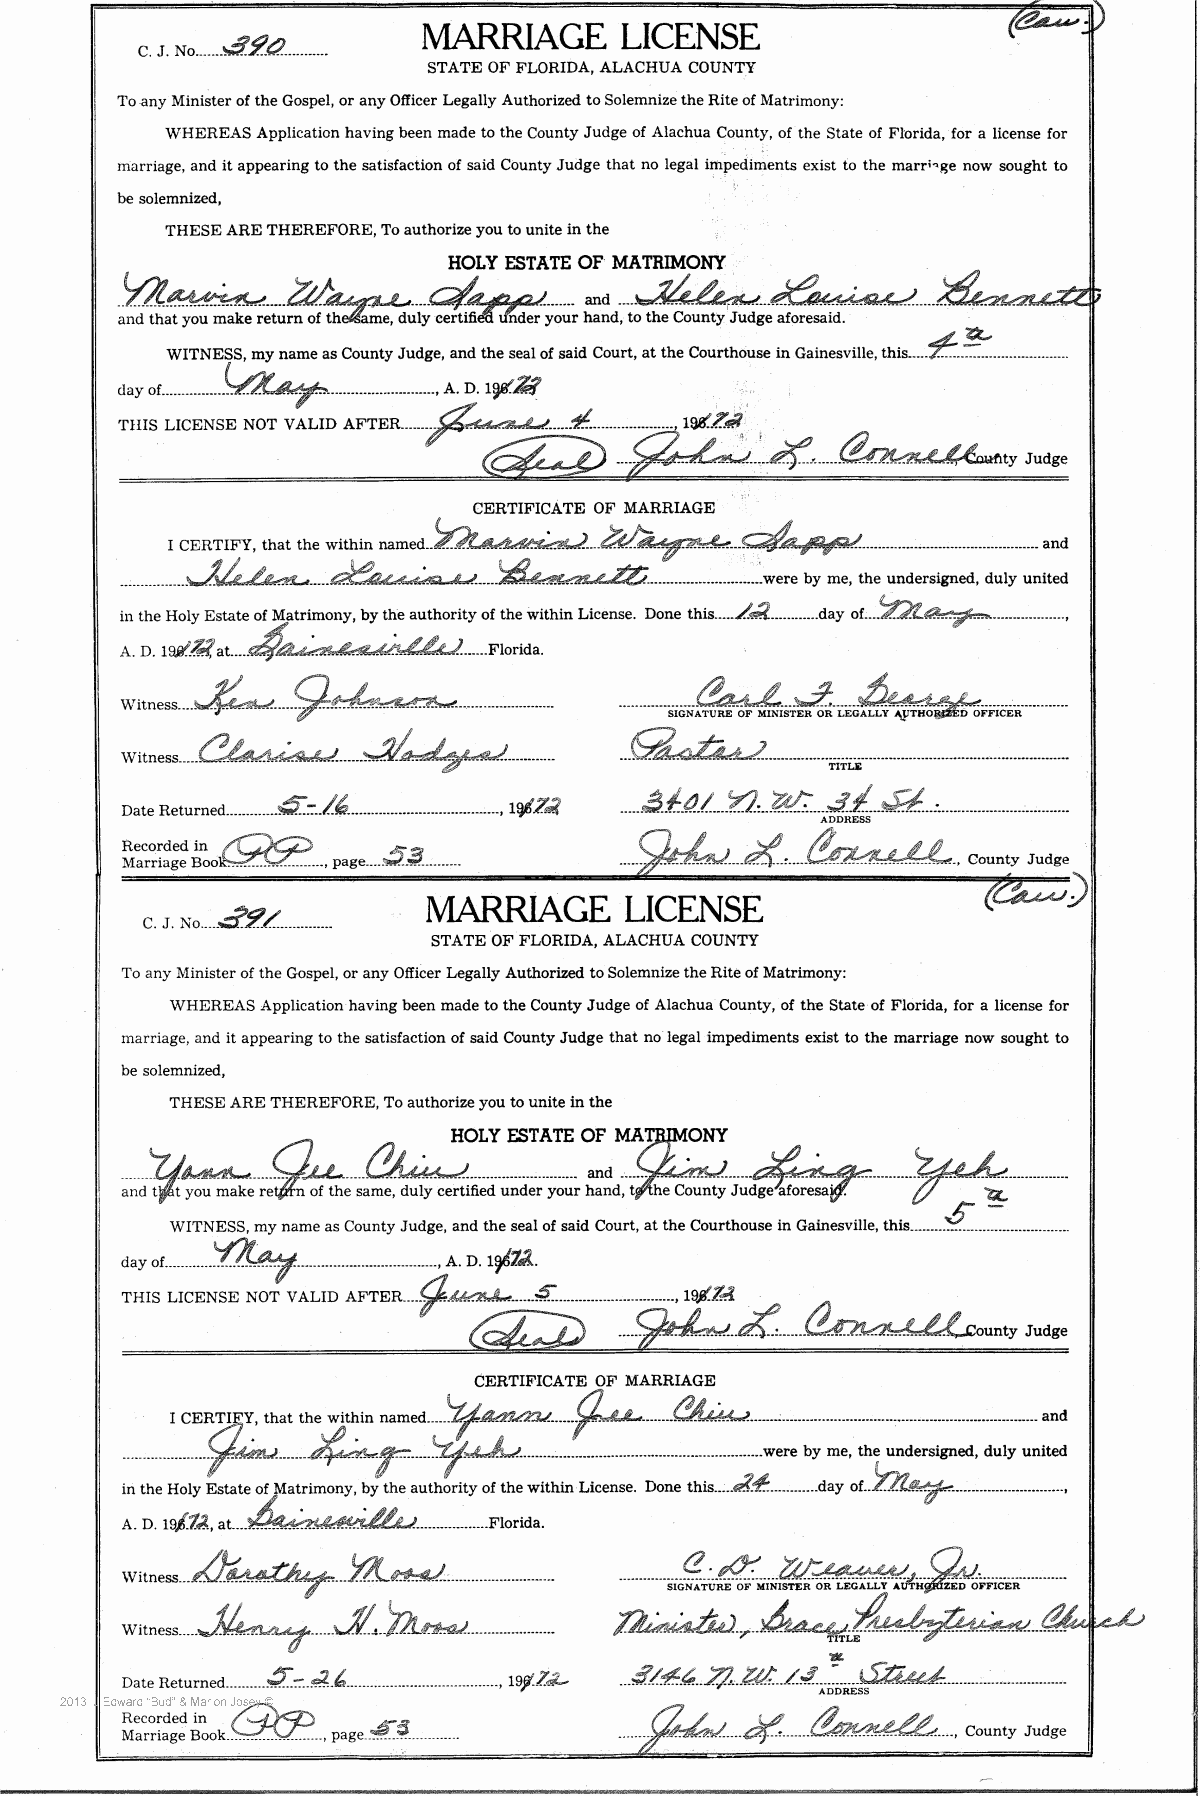 (Cau.)
C. J. No. 390
MARRIAGE LICENSE
STATE OF FLORIDA, ALACHUA COUNTY
To any Minister of the Gospel, or any Officer Legally Authorized to Solemnize the Rite of Matrimony:
WHEREAS Application having been made to the County Judge of Alachua County, of the State of Florida, for a license for
marriage, and it appearing to the satisfaction of said County Judge that no legal impediments exist to the marriage now sought to
be solemnized,
THESE ARE THEREFORE, To authorize you to unite in the
HOLY ESTATE OF MATRIMONY
Marvin Wayne Sapp and Helen Louise Bennett
and that you make return of the same, duly certified under your hand, to the County Judge aforesaid.
WITNESS, my name as County Judge, and the seal of said Court, at the Courthouse in Gainesville, this 4th
day of May, A. D. 1972
THIS LICENSE NOT VALID AFTER June 4, 1972
(Seal) John L. Connell, County Judge
CERTIFICATE OF MARRIAGE
I CERTIFY, that the within named Marvin Wayne Sapp and
Helen Louise Bennett were by me, the undersigned, duly united
in the Holy Estate of Matrimony, by the authority of the within License. Done this 12 day of May,
A. D. 1972, at Gainesville Florida.
Witness Ken Johnson Carl F. George
SIGNATURE OF MINISTER OR LEGALLY AUTHORIZED OFFICER
Witness Clarise Hodges Pastor
TITLE
Date Returned 5-16, 1972 3401 N.W. 34 St.
ADDRESS
Recorded in
Marriage Book PP, page 53 John L. Connell, County Judge
(Cau.)
C. J. No. 391
MARRIAGE LICENSE
STATE OF FLORIDA, ALACHUA COUNTY
To any Minister of the Gospel, or any Officer Legally Authorized to Solemnize the Rite of Matrimony:
WHEREAS Application having been made to the County Judge of Alachua County, of the State of Florida, for a license for
marriage, and it appearing to the satisfaction of said County Judge that no legal impediments exist to the marriage now sought to
be solemnized,
THESE ARE THEREFORE, To authorize you to unite in the
HOLY ESTATE OF MATRIMONY
Yann Jee Chiu and Jim Ling Yeh
and that you make return of the same, duly certified under your hand, to the County Judge aforesaid.
WITNESS, my name as County Judge, and the seal of said Court, at the Courthouse in Gainesville, this 5th
day of May, A. D. 1972.
THIS LICENSE NOT VALID AFTER June 5, 1972
(Seal) John L. Connell County Judge
CERTIFICATE OF MARRIAGE
I CERTIFY, that the within named Yann Jee Chiu and
Jim Ling Yeh were by me, the undersigned, duly united
in the Holy Estate of Matrimony, by the authority of the within License. Done this 24 day of May,
A. D. 1972, at Gainesville Florida.
Witness Dorothy Moss C. D. Weaver, Jr.
SIGNATURE OF MINISTER OR LEGALLY AUTHORIZED OFFICER
Witness Henry H. Moss Minister, Grace Presbyterian Church
TITLE
Date Returned 5-26, 1972 3146 N.W. 13th Street
ADDRESS
2013 Edward "Bud" & Marion Josey ©
Recorded in
Marriage Book PP, page 53 John L. Connell, County Judge